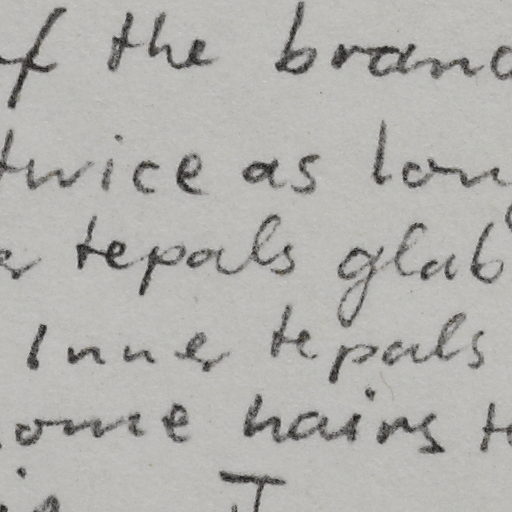 f the bran
twice as lon
tepals glab
Inner tepals
some hairs t